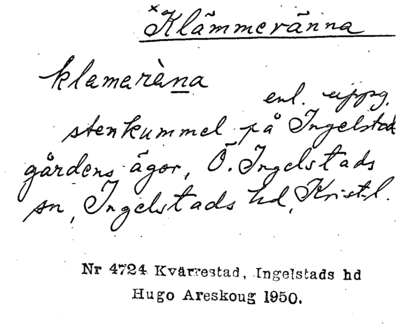 ×Klämmeränna
klamaràna
enl. uppg.
stenkummel på Ingelstad
gårdens ägor, Ö. Ingelstads
sn, Ingelstads hd, Krist.l.
Nr 4724 Kvärrestad, Ingelstads hd
Hugo Areskoug 1950.